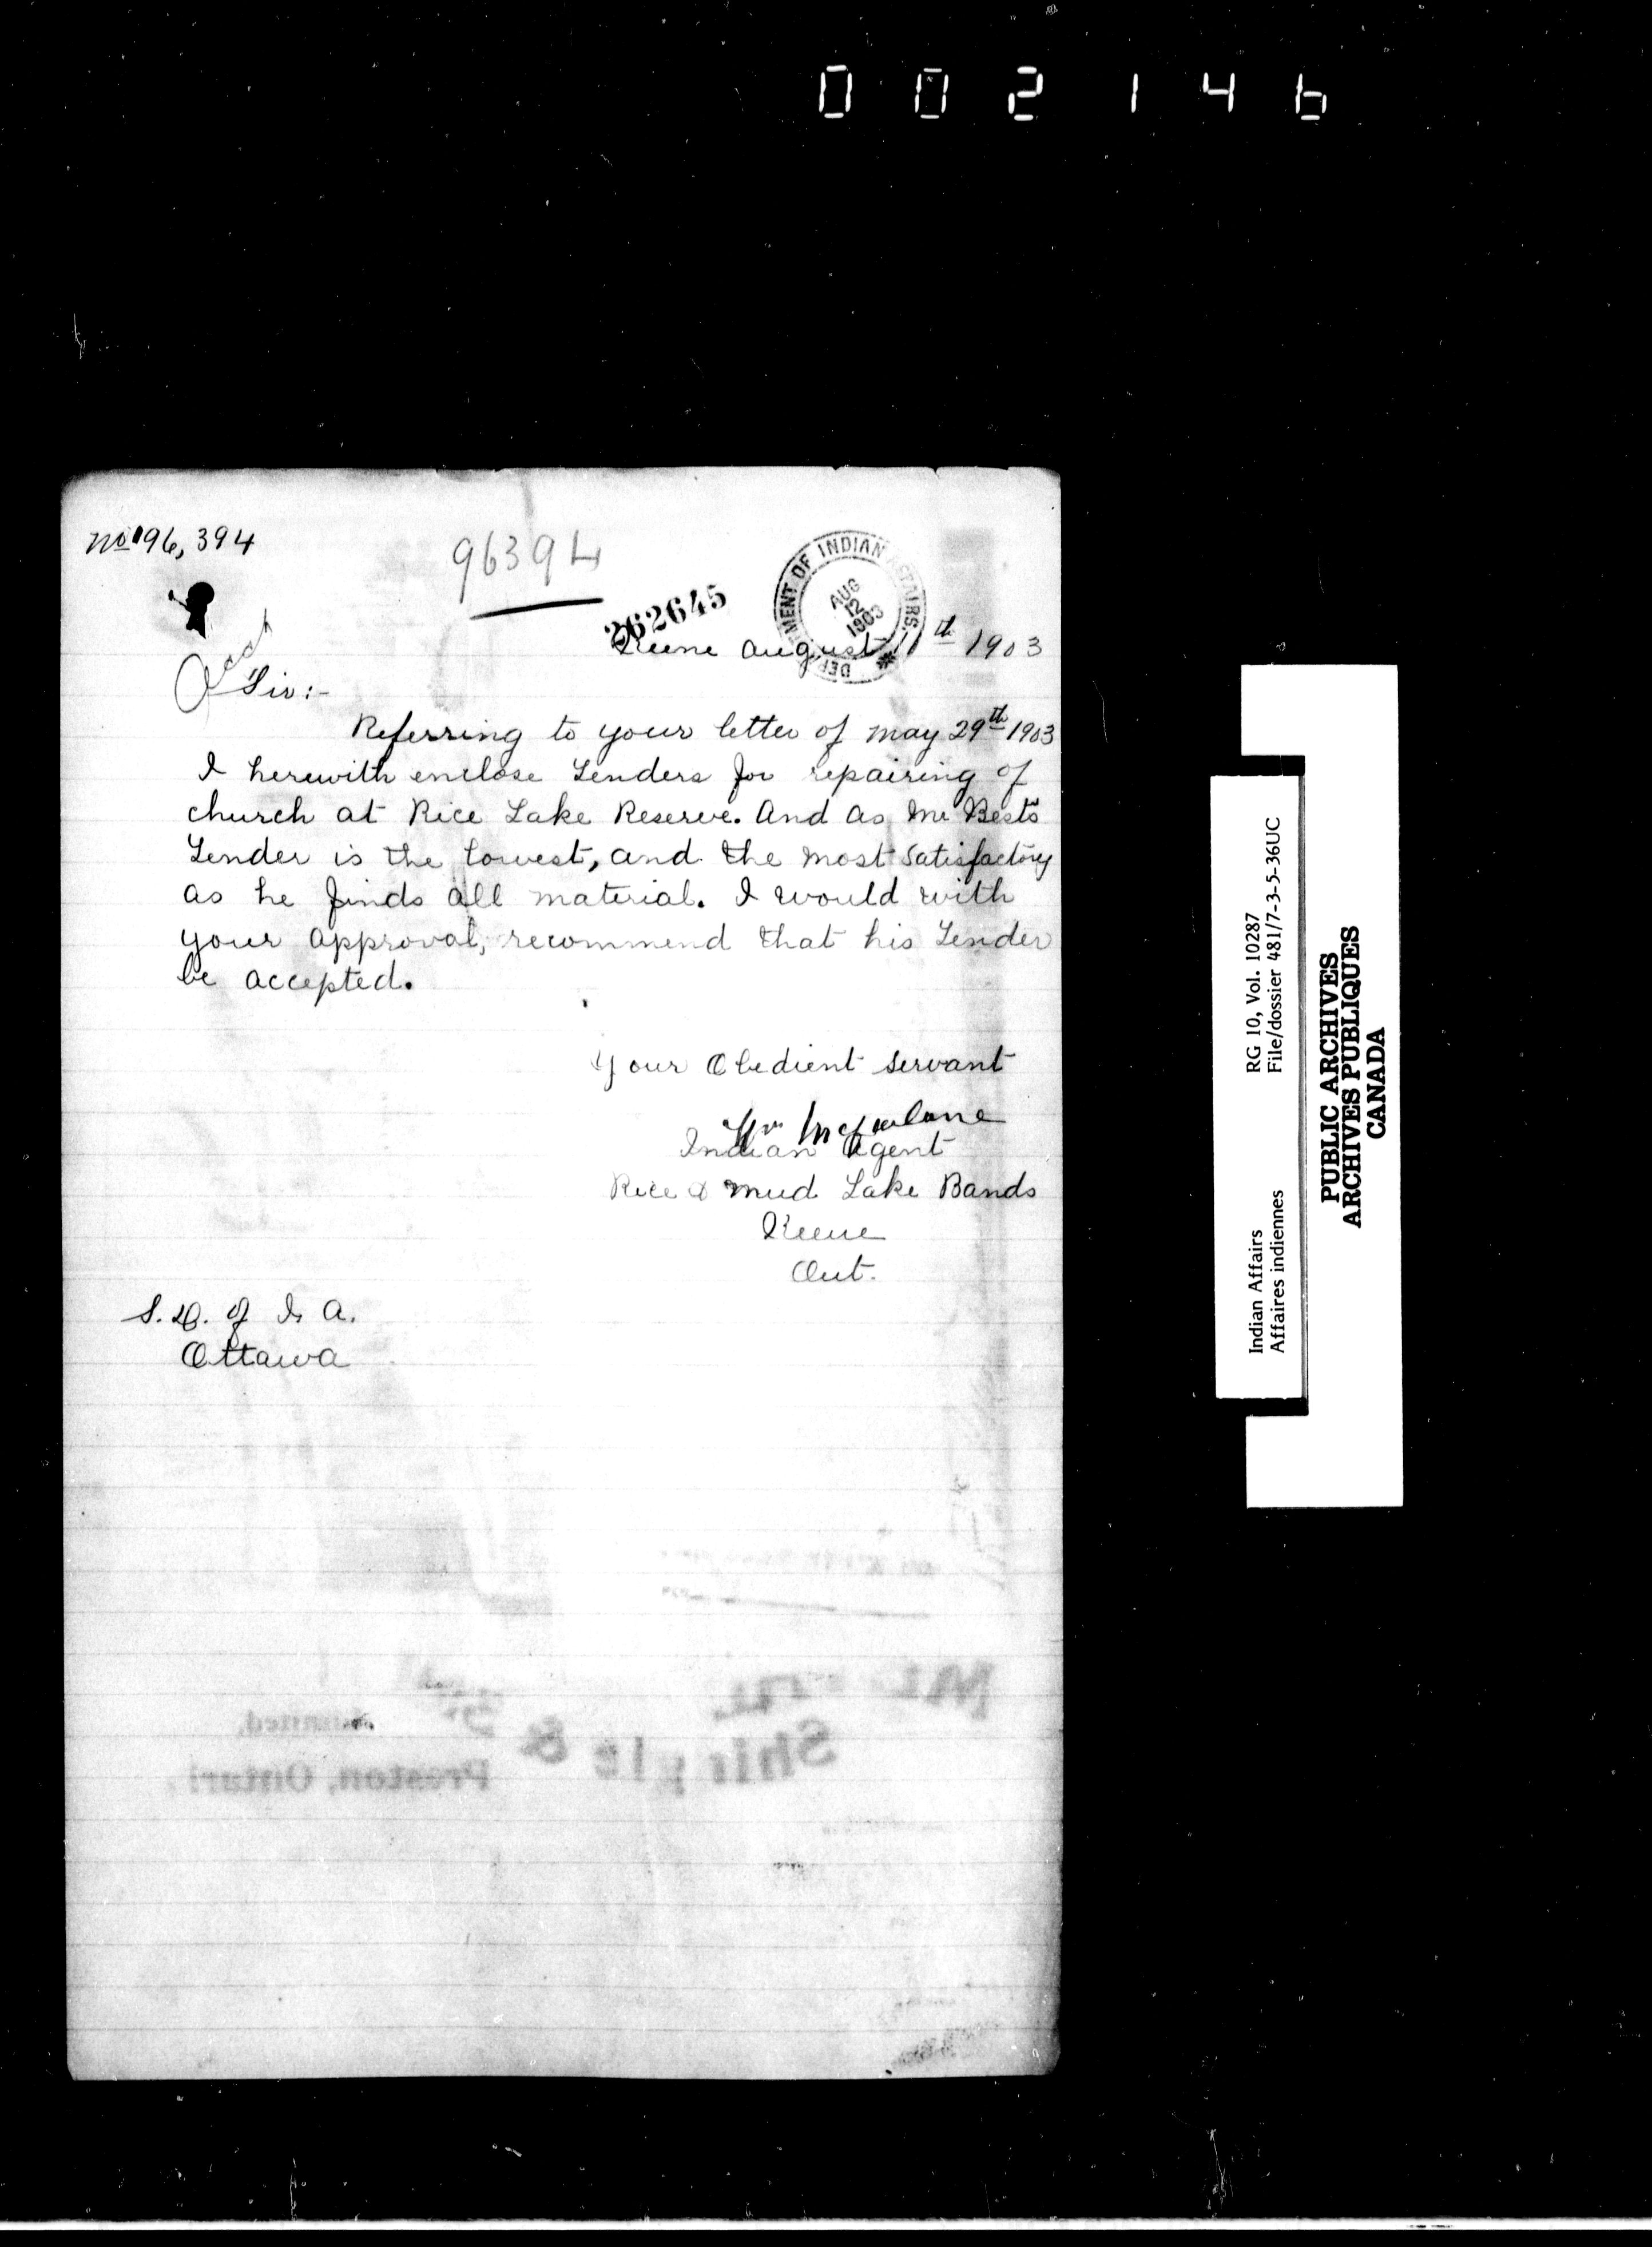 002146
No 96,394
96394
262645
DEPARTMENT OF INDIAN AFFAIRS.
AUG
12
1903
Keene August 11th 1903
Acct
Sir:-
Referring to your letter of May 29th 1903
I herewith enclose Tenders for repairing of
church at Rice Lake Reserve. And as Mr Best's
Tender is the lowest, and the most Satisfactory
as he finds all material. I would with
your approval, recommend that his Tender
be accepted.
Your Obedient Servant
Wm McFarlane
Indian Agent
Rice & Mud Lake Bands
Keene
Ont.
S. G. of I. A.
Ottawa
Shingle &
Limited,
Preston, Ontari
Indian Affairs RG 10, Vol. 10287
Affaires indiennes File/dossier 481/7-3-5-36UC
PUBLIC ARCHIVES
ARCHIVES PUBLIQUES
CANADA